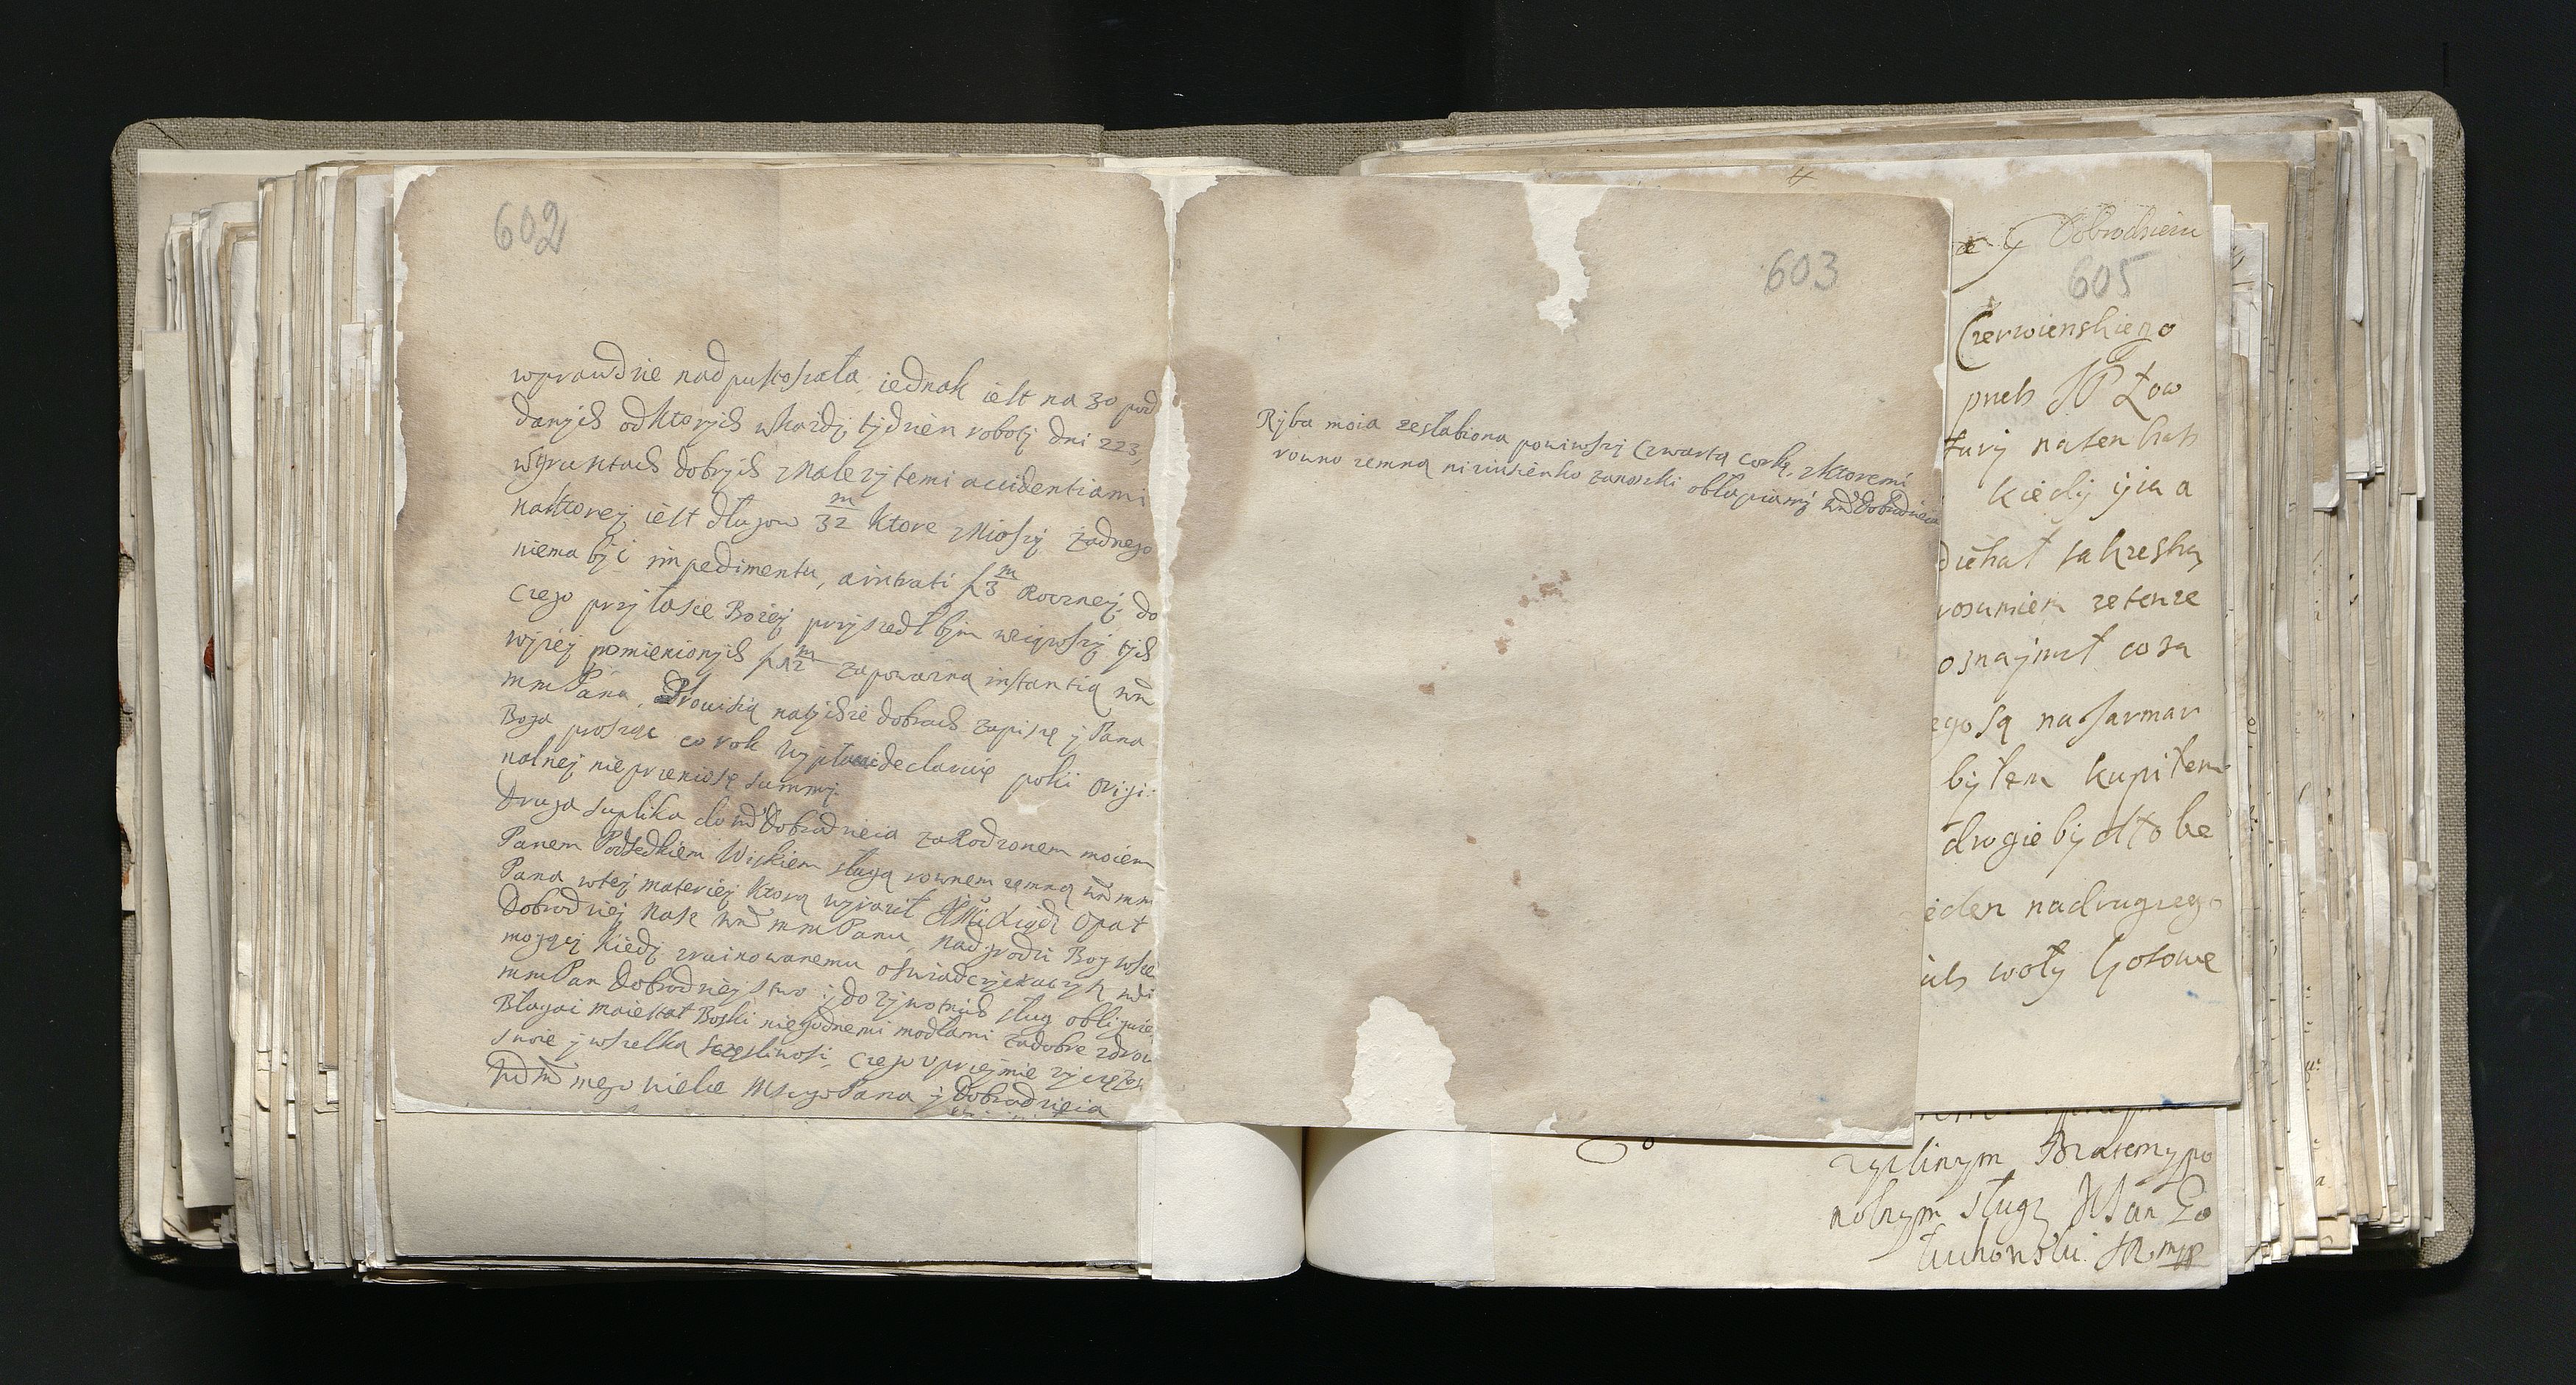 602
wprawdzie nadpustoszała, iednak iest na 30 pod
danych od ktorych w każdy tydzien roboty dni 223,
w gruntach dobrych z należytemi accidentiami
na ktorey iest długow 32 m ktore zniosszy żadnego
niema być impedimentu, a intrati f 3 m Roczney, do
czego przy łasce Bożey przyszedł bym wziąwszy tych
wyżey pomienionych f 12 m za powazną instantią
mm Pana, Prowisią na tychże dobrach zapiszę y Pana
Boga proszęc co rok wypłacić declaruię poki origi:
nalney nieprzeniosę summy.
Druga suplika do Dobrodzieia za Rodzonem moiem
Panem Podsedkiem Wiskiem sługą rownem zemną mm
Pana w tey materiey ktorą wyraził Xiądz Opat
Dobrodziey Nasz mm Panu, nadgrodzi Bog wsze
mogący kiedy zruinowanemu oswiadczysz
mm Pan Dobrodzieystwo y dożywotnich sług obliguie
Błagai maiestat Boski niegodnemi modłami za dobre zdrow
swoie y wszelką sczęsliwość, czego uprzeymie życzę
mego wielce Mscgo Pana y Dobrodzieia
603
Ryba moia zesłabiona powiwszy Czwartą corkę, z ktoremi
rowno zemną niziusienko zanozki obłapiamy Dobrodzieia
y Dobrodzieiu
605
Czerwienskiego
pneh Zow
tury natenczas
kiedy iją a
dichał sakreska
rosumiem zetenze
osnaymił cosa
ego są na Jarmar
byłem kupiłem
drogie bydło be
ieden nadrugiego
ich woły Gotowe
zyczlinym Bratem y po
wolnym sługą Jan Zo
łuchowski